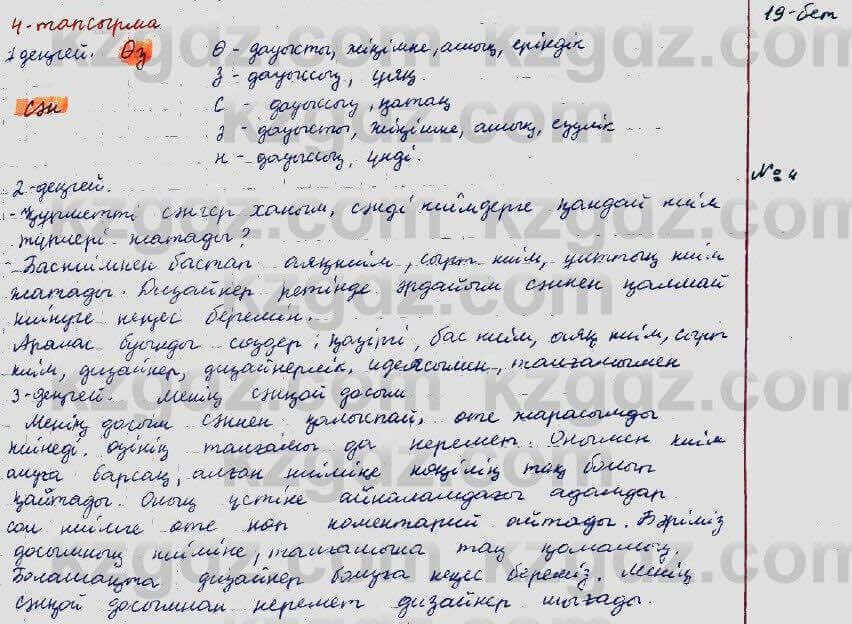 4-тапсырма
19-бет
1 деңгей. Өз Ө - дауысты, жіңішке, ашық, еріндік
З - дауыссыз, ұяң.
сән С - дауыссыз, қатаң
Ә - дауысты, жіңішке, ашық, езулік
н - дауыссыз, үнді.
2-деңгей.
№ 4
- Құрметті сәнгер ханым, сәнді киімдерге қандай киім
түрлері жатады?
- Баскиімнен бастап аяқкиім, сырт киім, ұлттық киім
жатады. Дизайнер ретінде әрдайым сәннен қалмай
киінуге кеңес беремін.
Аралас буынды сөздер: қазіргі, бас киім, аяқ киім, сырт
киім, дизайнер, дизайнерлік, идеясымен, талғамымен
3-деңгей. Менің сәнқой досым
Менің досым сәннен қалыспай, өте жарасымды
киінеді. өзінің талғамы да керемет. Онымен киім
алуға барсақ, алған киіміңе көңілің тоқ болып
қайтады. Оның үстіне айналамдағы адамдар
сол киімге өте көп коментарий айтады. Бәріміз
досымның киіміне, талғамына таң қаламыз.
Болашақта дизайнер болуға кеңес береміз. Менің
сәнқой досымнан керемет дизайнер шығады.